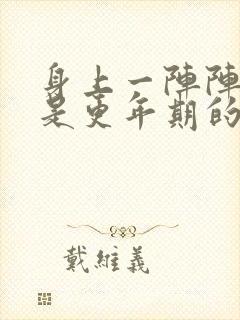 身上一陣陣
是更年期的
戴維義